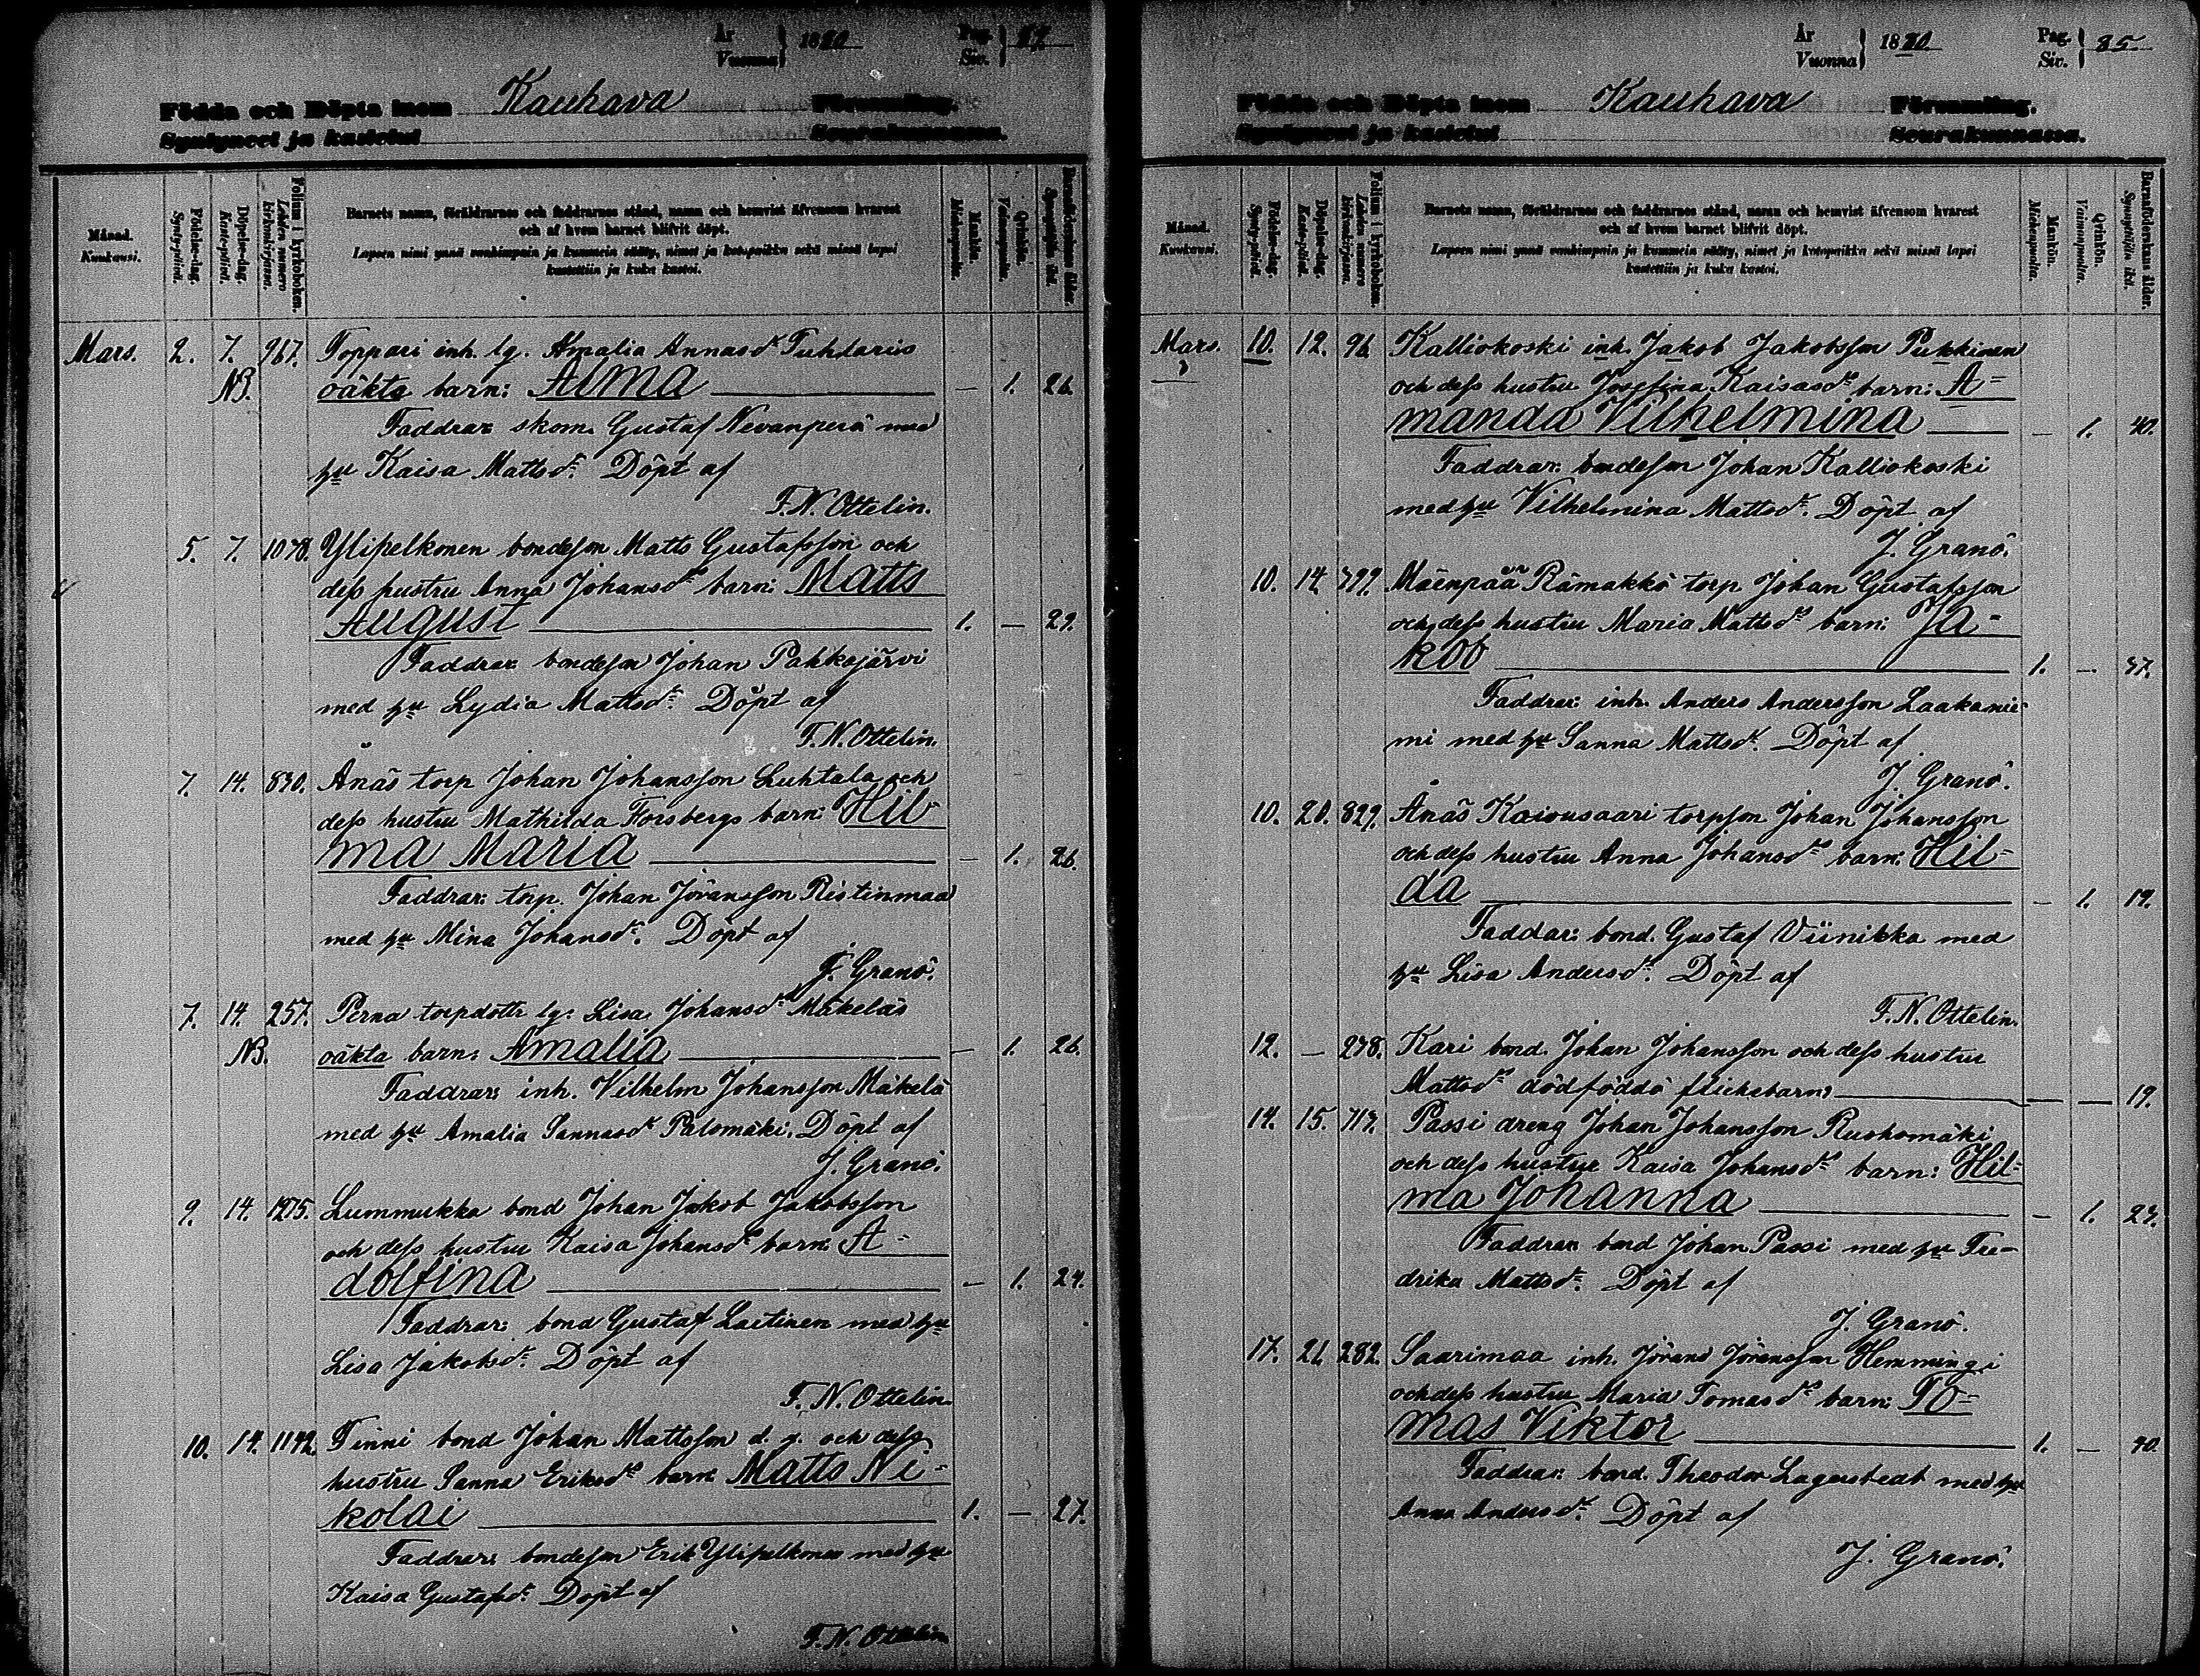 År
Vuonna } 1880
Pag.
Siv. } 84.
Födda och Döpta inom Kauhava Församling.
Syntyneet ja kastetut Seurakunnassa.
Månad.
Kuukausi.
Födelse-dag.
Synty-päivä.
Döpelse-dag.
Kaste-päivä.
Folium i kyrkoboken.
Lehden numero kirkonkirjassa.
Barnets namn, föräldrarnes och faddrarnes stånd, namn och hemvist äfvensom hvarest
och af hvem barnet blifvit döpt.
Lapsen nimi ynnä vanhimpain ja kummein sääty, nimet ja kotopaikka sekä missä lapsi
kastettiin ja kuka kastoi.
Mankön.
Miehenpuolta.
Qvinkön.
Vaimonpuolta.
Barnaföderskans ålder.
Synnyttäjän ikä.
Mars. 2. 7. 967. Toppari inh. lg. Amalia Annasdr Tuhdaris
NB. oäkta barn: Alma — 1. 26.
Faddrar: skom. Gustaf Nevanperä med
hu Kaisa Mattsdr. Döpt af
F. N. Ottelin.
5. 7. 1078. Ylipelkonen bondeson Matts Gustafsson och
dess hustru Anna Johansdrs barn: Matts
August 1. — 29.
Faddrar: bondeson Johan Pahkajärvi
med hu Lydia Mattsdr. Döpt af
F. N. Ottelin.
7. 14. 830. Änäs torp Johan Johansson Luhtala och
dess hustru Mathilda Forsbergs barn: Hil-
ma Maria — 1. 26.
Faddrar: torp. Johan Jöransson Ristinmaa
med hu Mina Johansdr. Döpt af
J. Granö.
7. 14. 257. Perna torpdottr lg. Lisa Johansdr Mäkeläs
NB. oäkta barn: Amalia — 1. 26.
Faddrar: inh. Vilhelm Johansson Mäkelä
med hu Amalia Sannasdr Palomäki. Döpt af
J. Granö.
9. 14. 1275. Lummukka bond Johan Jakob Jakobsson
och dess hustru Kaisa Johansdrs barn: A-
dolfina — 1. 24.
Faddrar: bond Gustaf Laitinen med hu
Lisa Jakobsdr. Döpt af
F. N. Ottelin.
10. 14. 1142. Finni bond Johan Mattsson d. y. och dess
hustru Sanna Eriksdrs barn: Matts Ni-
kolai 1. — 27.
Faddrar: bondeson Erik Ylipelkonen med hu
Kaisa Gustafsdr. Döpt af
F. N. Ottelin
År
Vuonna } 1880
Pag.
Siv. } 85
Födda och Döpta inom Kauhava Församling.
Syntyneet ja kastetut Seurakunnassa.
Månad.
Kuukausi.
Födelse-dag.
Synty-päivä.
Döpelse-dag.
Kaste-päivä.
Folium i kyrkoboken.
Lehden numero kirkonkirjassa.
Barnets namn, föräldrarnes och faddrarnes stånd, namn och hemvist äfvensom hvarest
och af hvem barnet blifvit döpt.
Lapsen nimi ynnä vanhimpain ja kummein sääty, nimet ja kotopaikka sekä missä lapsi
kastettiin ja kuka kastoi.
Mankön.
Miehenpuolta.
Qvinkön.
Vaimonpuolta.
Barnaföderskans ålder.
Synnyttäjän ikä.
Mars. 10. 12. 96. Kalliokoski inh. Jakob Jakobsson Pukkinen
och dess hustru Josefina Kaisasdrs barn: A-
manda Vilhelmina — 1. 40.
Faddrar: bondeson Johan Kalliokoski
med hu Vilhelmina Mattsdr. Döpt af
J. Granö.
10. 14. 799. Mäenpää Rämäkkö torp Johan Gustafsson
och dess hustru Maria Mattsdrs barn: Ja-
kob 1. — 37.
Faddrar: inh. Anders Andersson Laakanie-
mi med hu Sanna Mattsdr. Döpt af
J. Granö.
10. 20. 829. Änäs Kaivusaari torpson Johan Johansson
och dess hustru Anna Johansdrs barn: Hil-
da — 1. 19.
Faddar: bond. Gustaf Viinikka med
hu Lisa Andersdr. Döpt af
F. N. Ottelin.
12. — 278. Kari bond. Johan Johansson och dess hustru
Mattsdrs dödfödda flickebarn — — 19.
14. 15. 717. Passi dreng Johan Johansson Ruohomäki
och dess hustru Kaisa Johansdrs barn: Hil-
ma Johanna — 1. 27.
Faddrar: bond Johan Passi med hu Fre-
drika Mattsdr. Döpt af
J. Granö.
17. 21. 282. Saarimaa inh. Jörans Jöransson Hemmingi
och dess hustru Maria Tomasdrs barn: To-
mas Viktor 1. — 40.
Faddrar: bond. Theodor Lagerstedt med hu
Anna Andersdr. Döpt af
J. Granö.